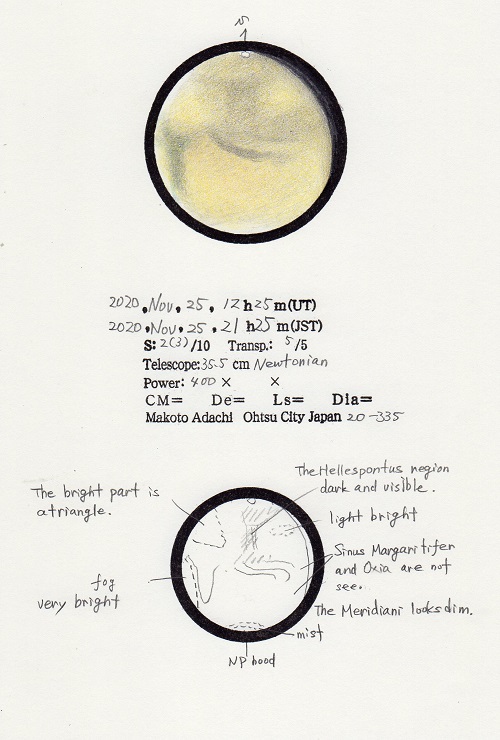 S
2020, Nov, 25, 12h25m(UT)
2020, Nov, 25, 21h25m(JST)
S: 2(3)/10 Transp.: 5/5
Telescope: 35.5 cm Newtonian
Power: 400 × ×
CM= De= Ls= Dia=
Makoto Adachi Ohtsu City Japan 20-335
The Hellespontus region
dark and visible.
The bright part is
a triangle.
light bright
Sinus Margaritifer
and Oxia are not
see.
fog
very bright
The Meridiani looks dim.
mist
NP hood